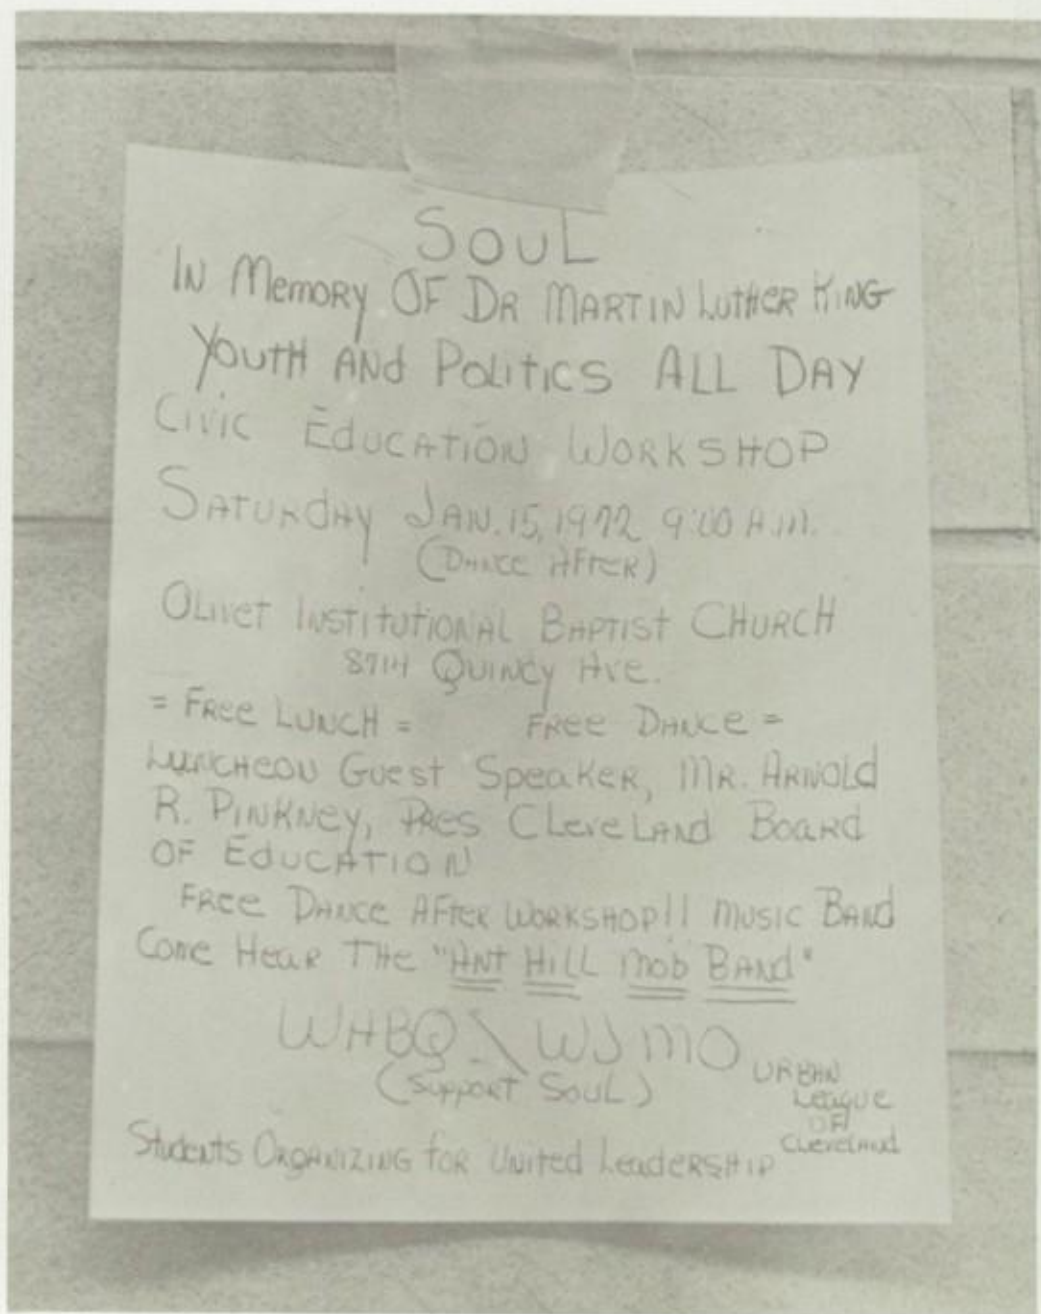 SOUL
IN Memory OF DR MARTIN LUTHER KING
YOUTH AND POLITICS ALL DAY
CIVIC EDUCATION WORKSHOP
SATURDAY JAN. 15, 1972 9:00 A.M.
(DANCE AFTER)
OLIVET INSTITUTIONAL BAPTIST CHURCH
8714 QUINCY AVE.
= FREE LUNCH = FREE DANCE =
LUNCHEON GUEST SPEAKER, MR. ARNOLD
R. PINKNEY, PRES CLEVELAND BOARD
OF EDUCATION
FREE DANCE AFTER WORKSHOP!! MUSIC BAND
COME HEAR THE "ANT HILL MOB BAND"
WABQ \ WJMO
(SUPPORT SOUL)
URBAN
League
OF
Cleveland
Students ORGANIZING FOR UNITED LEADERSHIP